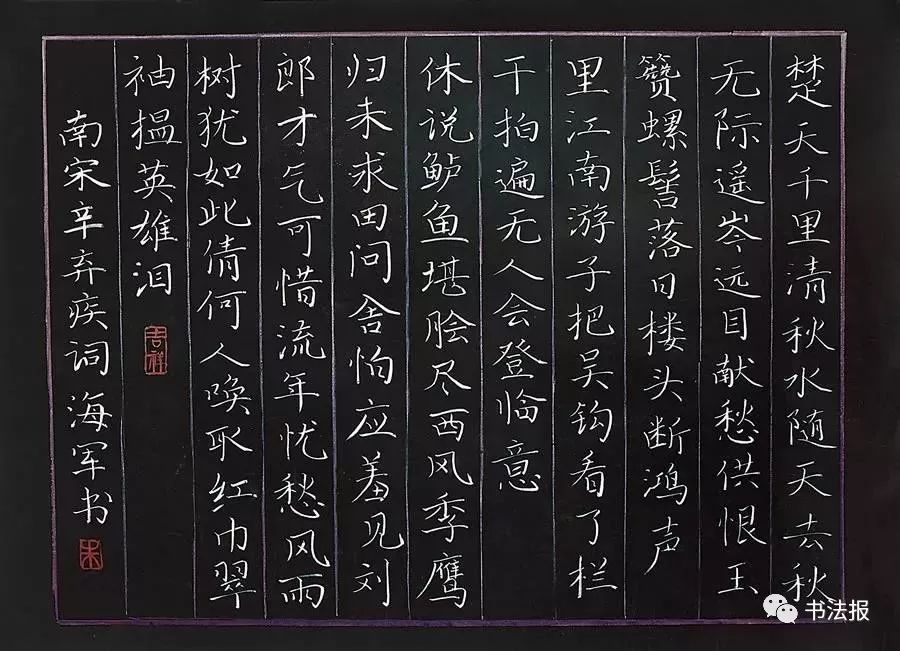 楚天千里清秋水随天去秋
无际遥岑远目献愁供恨玉
簪螺髻落日楼头断鸿声
里江南游子把吴钩看了栏
干拍遍无人会登临意
休说鲈鱼堪脍尽西风季鹰
归未求田问舍怕应羞见刘
郎才气可惜流年忧愁风雨
树犹如此倩何人唤取红巾翠
袖揾英雄泪
吉祥
南宋辛弃疾词海军书
朱
书法报